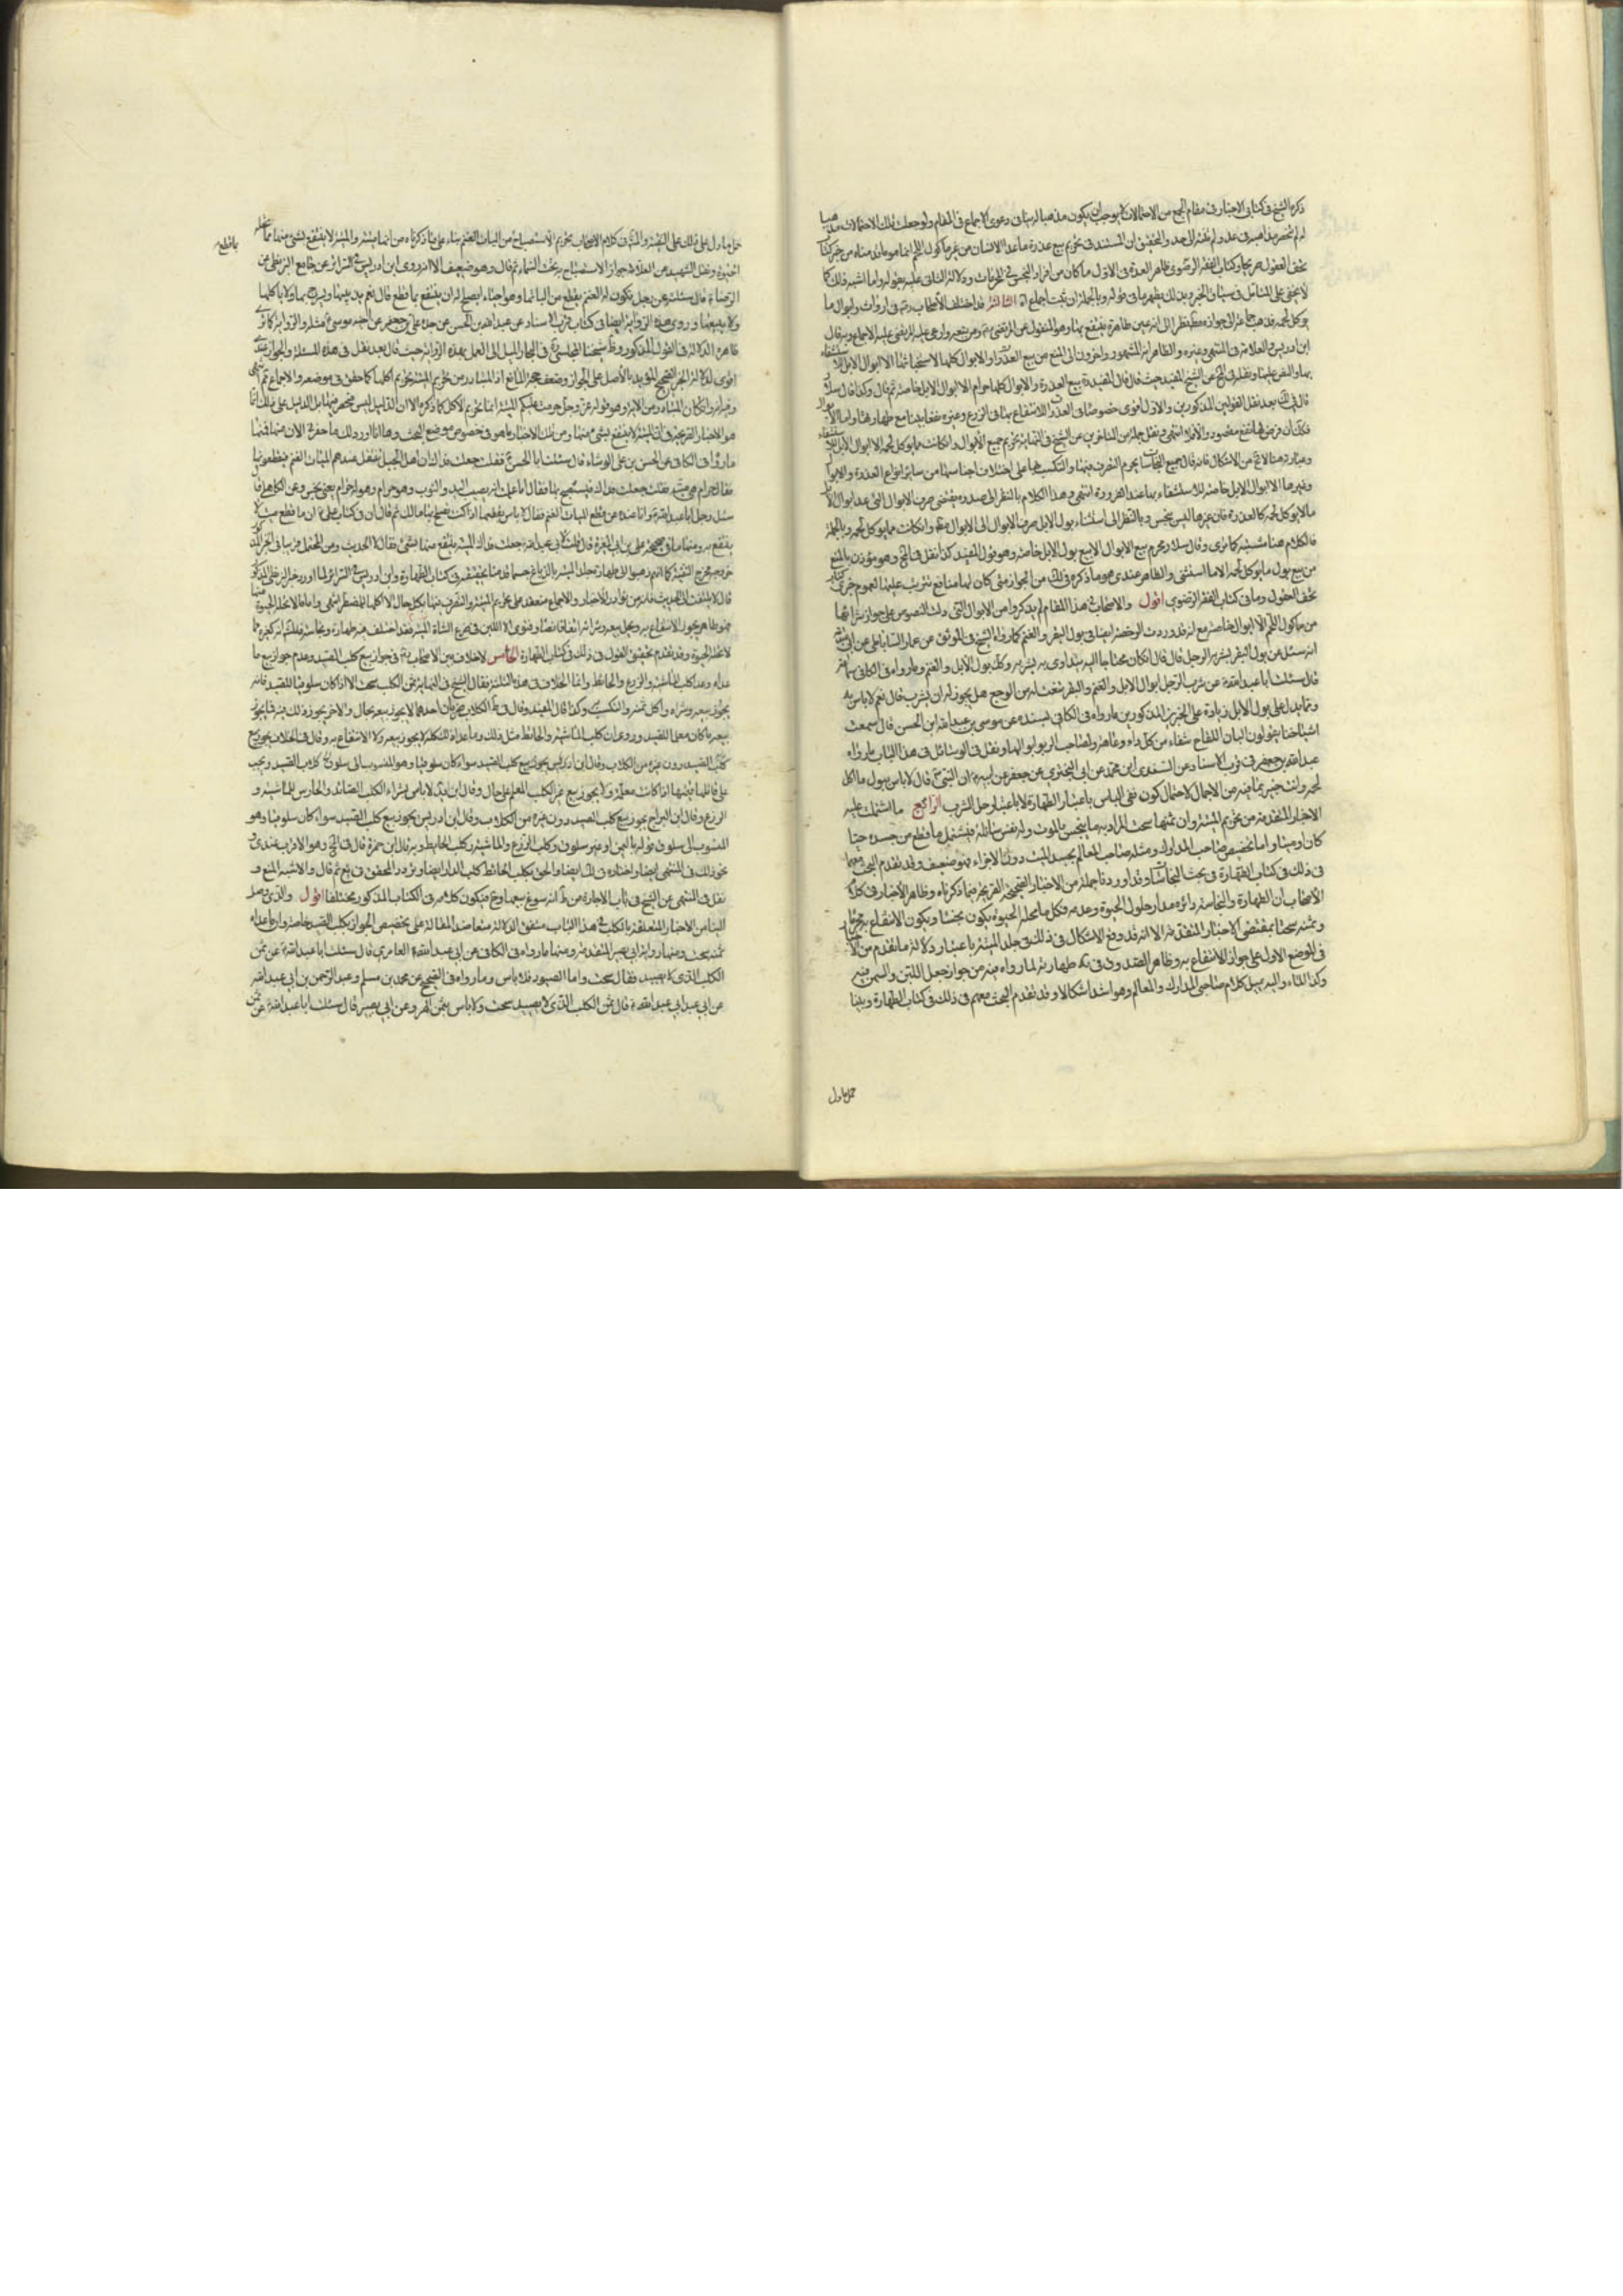 ذكره الشيخ في كتابي الاخبار في مقام الجمع من الاحتمالات لا يوجب ان يكون مذهبا له ينافي دعوى الاجماع في المقام ولو جعلت تلك الاحتمالات مذهبا
له لم تنحصر مذاهبه في عدد ولم تقف الى حد والتحقيق ان المستند في تحريم بيع عذرة ما عدا الانسان من غير ماكول اللحم انما هو ما قدمناه من خبر كتاب
تحف العقول
لا يخفى على المتامل في سياق الخبر وبذلك يظهر ما في قوله وبالجملة ان ثبت اجماع الثالث قد اختلف الأصحاب رض في ارواث وابوال ما
يوكل لحمه فذهب جماعة الى جوازه مطلقا نظرا الى انه عين طاهرة ينتفع بها وهو المنقول عن المرتضى وادعى عليه المرتضى عليه الاجماع وبه قال
ابن ادريس والعلامة في المنتهى وغيره والظاهر انه المشهور واخرون الى المنع من بيع العذرة والابوال كلها لاستخباثها الا ابوال الابل للاستشفاء
بها والنص عليها ونقله في لف عن الشيخ المفيد حيث قال قال المفيد بيع العذرة والابوال كلها حرام الا ابوال الابل خاصة ثم قال وكذا قال سلار
قال في لك بعد نقل القولين المذكورين والاول اقوى خصوصا في العذرة للانتفاع بها في الزرع وغيره نفعا بينا مع طهارتها واما الابوال
فكك ان فرض لها نفع مقصود والا فلا انتهى ونقل جملة من المتاخرين عن الشيخ في النهاية تحريم جميع الأبوال وان كانت مما يوكل لحمه الا بوال الابل للاستشفاء
وعبارته هنا لا تخ من الاشكال فانه قال جميع النجاسات يحرم التصرف فيها والتكسب بها على اختلاف اجناسها من سائر انواع العذرة والابوال
وغيرها الا ابوال الابل خاصة للاستشفاء بها عند الضرورة انتهى وهذا الكلام بالنظر الى صدره يقتضي صرف الابوال الى عدا بوال
ما لا يوكل لحمه كالعذرة فان غيرها ليس بنجس وبالنظر الى استثناء بول الابل صرف الابوال الى الابوال مطلقا وان كانت مما يوكل لحمه وبالجملة
فالكلام هنا متشبه كما ترى وقال سلار يحرم بيع الابوال الا بيع بول الابل خاصة وهو قول المفيد كذا نقل في لف وهو مؤذن بالمنع
من بيع بول ما يوكل لحمه الا ما استثنى والظاهر عندي هو ما ذكره في لك من الجواز متى كان لها منافع تترتب عليها لعموم خبري كتاب
تحف العقول وما في كتاب الفقه الرضوي اقول والاصحاب في هذا المقام لم يذكروا من الابوال التي دلت النصوص على جواز شرائها
من ماكول اللحم الا ابوال خاصة مع انه قد وردت الرخصة ايضا في بول البقر والغنم كما رواه الشيخ في الموثق عن عمار الساباطي عن ابي عبد الله
انه سئل عن بول البقر يشربه الرجل قال ان كان محتاجا اليه يتداوى به يشربه وكك بول الابل والغنم وما رواه في الكافي عن سماعة
قال سئلت ابا عبد الله عن شرب الرجل ابوال الابل والغنم والبقر ينعت له من الوجع هل يجوز له ان يشرب قال نعم لا باس به
ومما يدل على بول الابل زيادة على الخبرين المذكورين ما رواه في الكافي بسنده عن موسى بن عبد الله ابن الحسن قال سمعت
اشياخنا يقولون البان اللقاح شفاء من كل داء وعاهة ولصاحب الربو ابوالها ونقل في الوسائل في هذا الباب ما رواه
عبد الله بن جعفر في قرب الاسناد عن السندي ابن محمد عن ابي البختري عن جعفر عن ابيه ان النبي ص قال لا باس ببول ما اكل
لحمه وانت خبير بما فيه من الاجمال لاحتمال كون نفي الباس باعتبار الطهارة لا باعتبار حل الشرب الرابع ما اشتملت عليه
الاخبار المتقدمة من تحريم الميتة وان ثمنها سحت المراد بها ما ينجس بالموت وله نفس سائلة فيشتمل ما قطع من جسده حيا
كان او ميتا واما تخصيص صاحب المدارك ومثله صاحب المعالم بجسد الميت دون الاجزاء فهو ضعيف وقد تقدم البحث معهما
في ذلك في كتاب الطهارة في بحث النجاسات وقد اوردنا جملة من الاخبار الصحيحة الصريحة فيما ذكرناه وظاهر الأخبار في كلام
الاصحاب ان الطهارة والنجاسة دائره مدار حلول الحيوة وعدمه فكل ما تحله الحيوة يكون نجسا ويكون الانتفاع به محرما
وثمنه سحتا بمقتضى الاخبار المتقدمة الا انه قد وقع الاشكال في ذلك في جلد الميتة باعتبار دلالة ما تقدم من الأخبار
في الموضع الاول على جواز الانتفاع به وظاهر الصدوق في يه طهارته لما رواه فيه من جواز جعل اللبن والسمن فيه
وكذا الماء واليه يميل كلام صاحبي المدارك والمعالم وهو اشد اشكالا وقد تقدم البحث معهم في ذلك في كتاب الطهارة وبينا
حمل ما دل
حمل ما دل على ذلك على التقية والمشهور في كلام الاصحاب تحريم الاستصباح من اليات الغنم بناء على ما ذكرناه من انها ميتة والميتة لا ينتفع بشيء منها مما تحله
الحيوة ونقل الشهيد عن العلامة جواز الاستصباح به تحت السماء ثم قال وهو ضعيف الا انه روى ابن ادريس في السرائر عن جامع البزنطي عن
الرضا قال سئلته عن رجل يكون له الغنم يقطع من الياتها وهو احياء ايصلح له ان ينتفع بما قطع قال نعم يذيبها ويسرج بها ولا ياكلها
ولا يبيعها وروى هذه الرواية ايضا في كتاب قرب الاسناد عن عبد الله بن الحسن عن جده علي بن جعفر عن اخيه موسى مثله والرواية كما ترى
ظاهرة الدلالة في القول المذكور وظ شيخنا المجلسي في البحار الميل الى العمل بهذه الرواية حيث قال بعد نقل في هذه المسئلة والجواز عندي
اقوى لدلالة الخبر الصحيح المؤيد بالأصل على الجواز وضعف حجة المانع اذ المتبادر من تحريم الميتة تحريم اكلها كما حقق في موضعه والاجماع مم انتهى
وفيه انه وان كان المتبادر من الاية وهو قوله عز وجل حرمت عليكم الميتة انما تحريم الأكل كما ذكره الا ان الدليل ليس منحصرا فيها بل الدليل على ذلك انما
هو الاخبار الصريحة في ان الميتة لا ينتفع بشيء منها ومن تلك الاخبار ما هو في خصوص موضع البحث وها انا اورد لك ما حضرني الان منها فمنها
ما رواه في الكافي عن الحسن بن علي الوشاء قال سئلت ابا الحسن فقلت جعلت فداك ان اهل الجبل تثقل عندهم اليات الغنم فيقطعونها
فقال حرام هي ميتة فقلت جعلت فداك فيستصبح بها فقال اما علمت انه يصيب اليد والثوب وهو حرام وعن الكاهلي قال
سئل رجل ابا عبد الله وانا عنده عن قطع اليات الغنم فقال لا باس بقطعها اذا كنت تصلح بها مالك ثم قال ان في كتاب علي ان ما قطع منها ميت لا
ينتفع به ومنها ما في صحيحة علي بن ابي المغيرة قال قلت لابي عبد الله جعلت فداك الميتة ينتفع منها بشيء فقال لا الحديث ومن المحتمل قريبا في الخبر المذكور
خروجه مخرج التقية كما انهم ذهبوا الى طهارة جلد الميتة بالدباغ حسبما قدمنا تحقيقه في كتاب الطهارة وابن ادريس في السرائر لما اورد خبر البزنطي المذكور
قال لا يلتفت الى الحديث فانه من نوادر الاخبار والاجماع منعقد على تحريم الميتة والتصرف فيها بكل حال الا اكلها للمضطر انتهى واما ما لا تحله الحيوة منها
فهو طاهر يجوز الانتفاع به ويحل بيعه وشرائه اتفاقا نصا وفتوى الا اللبن في ضرع الشاة الميتة فقد اختلف في طهارته ونجاسته
لا تحله الحيوة وقد تقدم تحقيق القول في ذلك في كتاب الطهارة الخامس لا خلاف بين الاصحاب رض في جواز بيع كلب الصيد وعدم جواز بيع ما
عداه وعدا كلب الماشية والزرع والحائط وانما الخلاف في هذه الثلاثة فقال الشيخ في النهاية ثمن الكلب سحت الا اذا كان سلوقيا للصيد فانه
يجوز بيعه وشراه واكل ثمنه والتكسب وكذا قال المفيد وقال في ط الكلاب ضربان احدهما لا يجوز بيعه بحال والاخر يجوز ذلك فيه فما يجوز
بيعه ما كان معلما للصيد وروى ان كلب الماشية والحائط مثل ذلك وما عداه ذلك كله لا يجوز بيعه ولا الانتفاع به وقال في الخلاف يجوز بيع
كلب الصيد دون غيره من الكلاب وقال ابن ادريس يجوز بيع كلب الصيد سواء كان سلوقيا وهو المنسوب الى سلوق
على قاتلها قيمتها اذا كانت معلمة ولا يجوز بيع غير الكلب المعلم على حال وقال ابن الجنيد لا باس بشراء الكلب الصائد والحارس للماشية و
الزرع وقال ابن البراج يجوز بيع كلب الصيد دون غيره من الكلاب وقال ابن ادريس يجوز بيع كلب الصيد سواء كان سلوقيا وهو
المنسوب الى سلوق قرية باليمن او غير سلوقي وكلب الزرع والماشية وكلب الحائط وبه قال ابن حمزة قال في لف وهو الاقرب عندي و
نحو ذلك في المنتهى ايضا واختاره في لك ايضا والحق بكلب الحائط كلب الدار ايضا وتردد المحقق في يع ثم قال والاشبه المنع و
نقل في المنتهى عن الشيخ في باب الاجارة من ط انه سوغ بيعها وح فيكون كلامه في الكتاب المذكور مختلفا اقول والذي وصل
الينا من الاخبار المتعلقة بالكلب في هذا الباب متفق الدلالة متعاضد المقالة على تخصيص الجواز بكلب الصيد خاصة وان ما عداه
ثمنه سحت ومنها رواية ابي بصير المتقدمة ومنها ما رواه في الكافي عن ابي عبد الله العامري قال سئلت ابا عبد الله عن ثمن
الكلب الذي لا يصيد فقال سحت واما الصيود فلا باس وما رواه في الصحيح عن محمد بن مسلم وعبد الرحمن بن ابي عبد الله
عن ابي عبد الله قال ثمن الكلب الذي لا يصيد سحت ولا باس بثمن الهر وعن ابي بصير قال سئلت ابا عبد الله عن ثمن